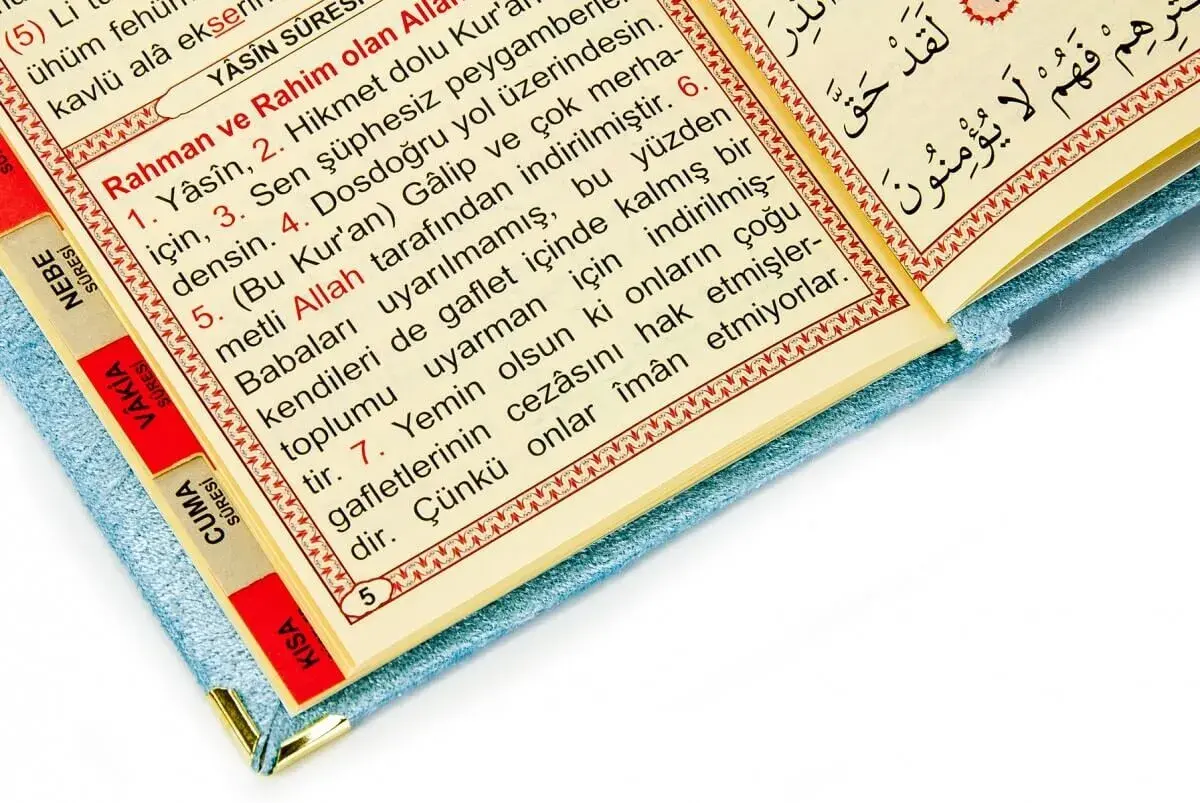 (5) Li
ühüm fehüm
kavlü alâ ekserin
YÂSÎN SÛRESİ
Rahman ve Rahim olan Allah
1. Yâsîn, 2. Hikmet dolu Kur'an
için, 3. Sen şüphesiz peygamberler-
densin. 4. Dosdoğru yol üzerindesin.
5. (Bu Kur'an) Gâlip ve çok merha-
metli Allah tarafından indirilmiştir. 6.
Babaları uyarılmamış, bu yüzden
kendileri de gaflet içinde kalmış bir
toplumu uyarman için indirilmiş-
tir. 7. Yemin olsun ki onların çoğu
gafletlerinin cezâsını hak etmişler-
dir. Çünkü onlar îmân etmiyorlar.
5
NEBE
SÛRESİ
VÂKİA
SÛRESİ
CUMA
SÛRESİ
KISA
لَقَدْ حَقَّ
فَهُمْ لَا يُؤْمِنُونَ